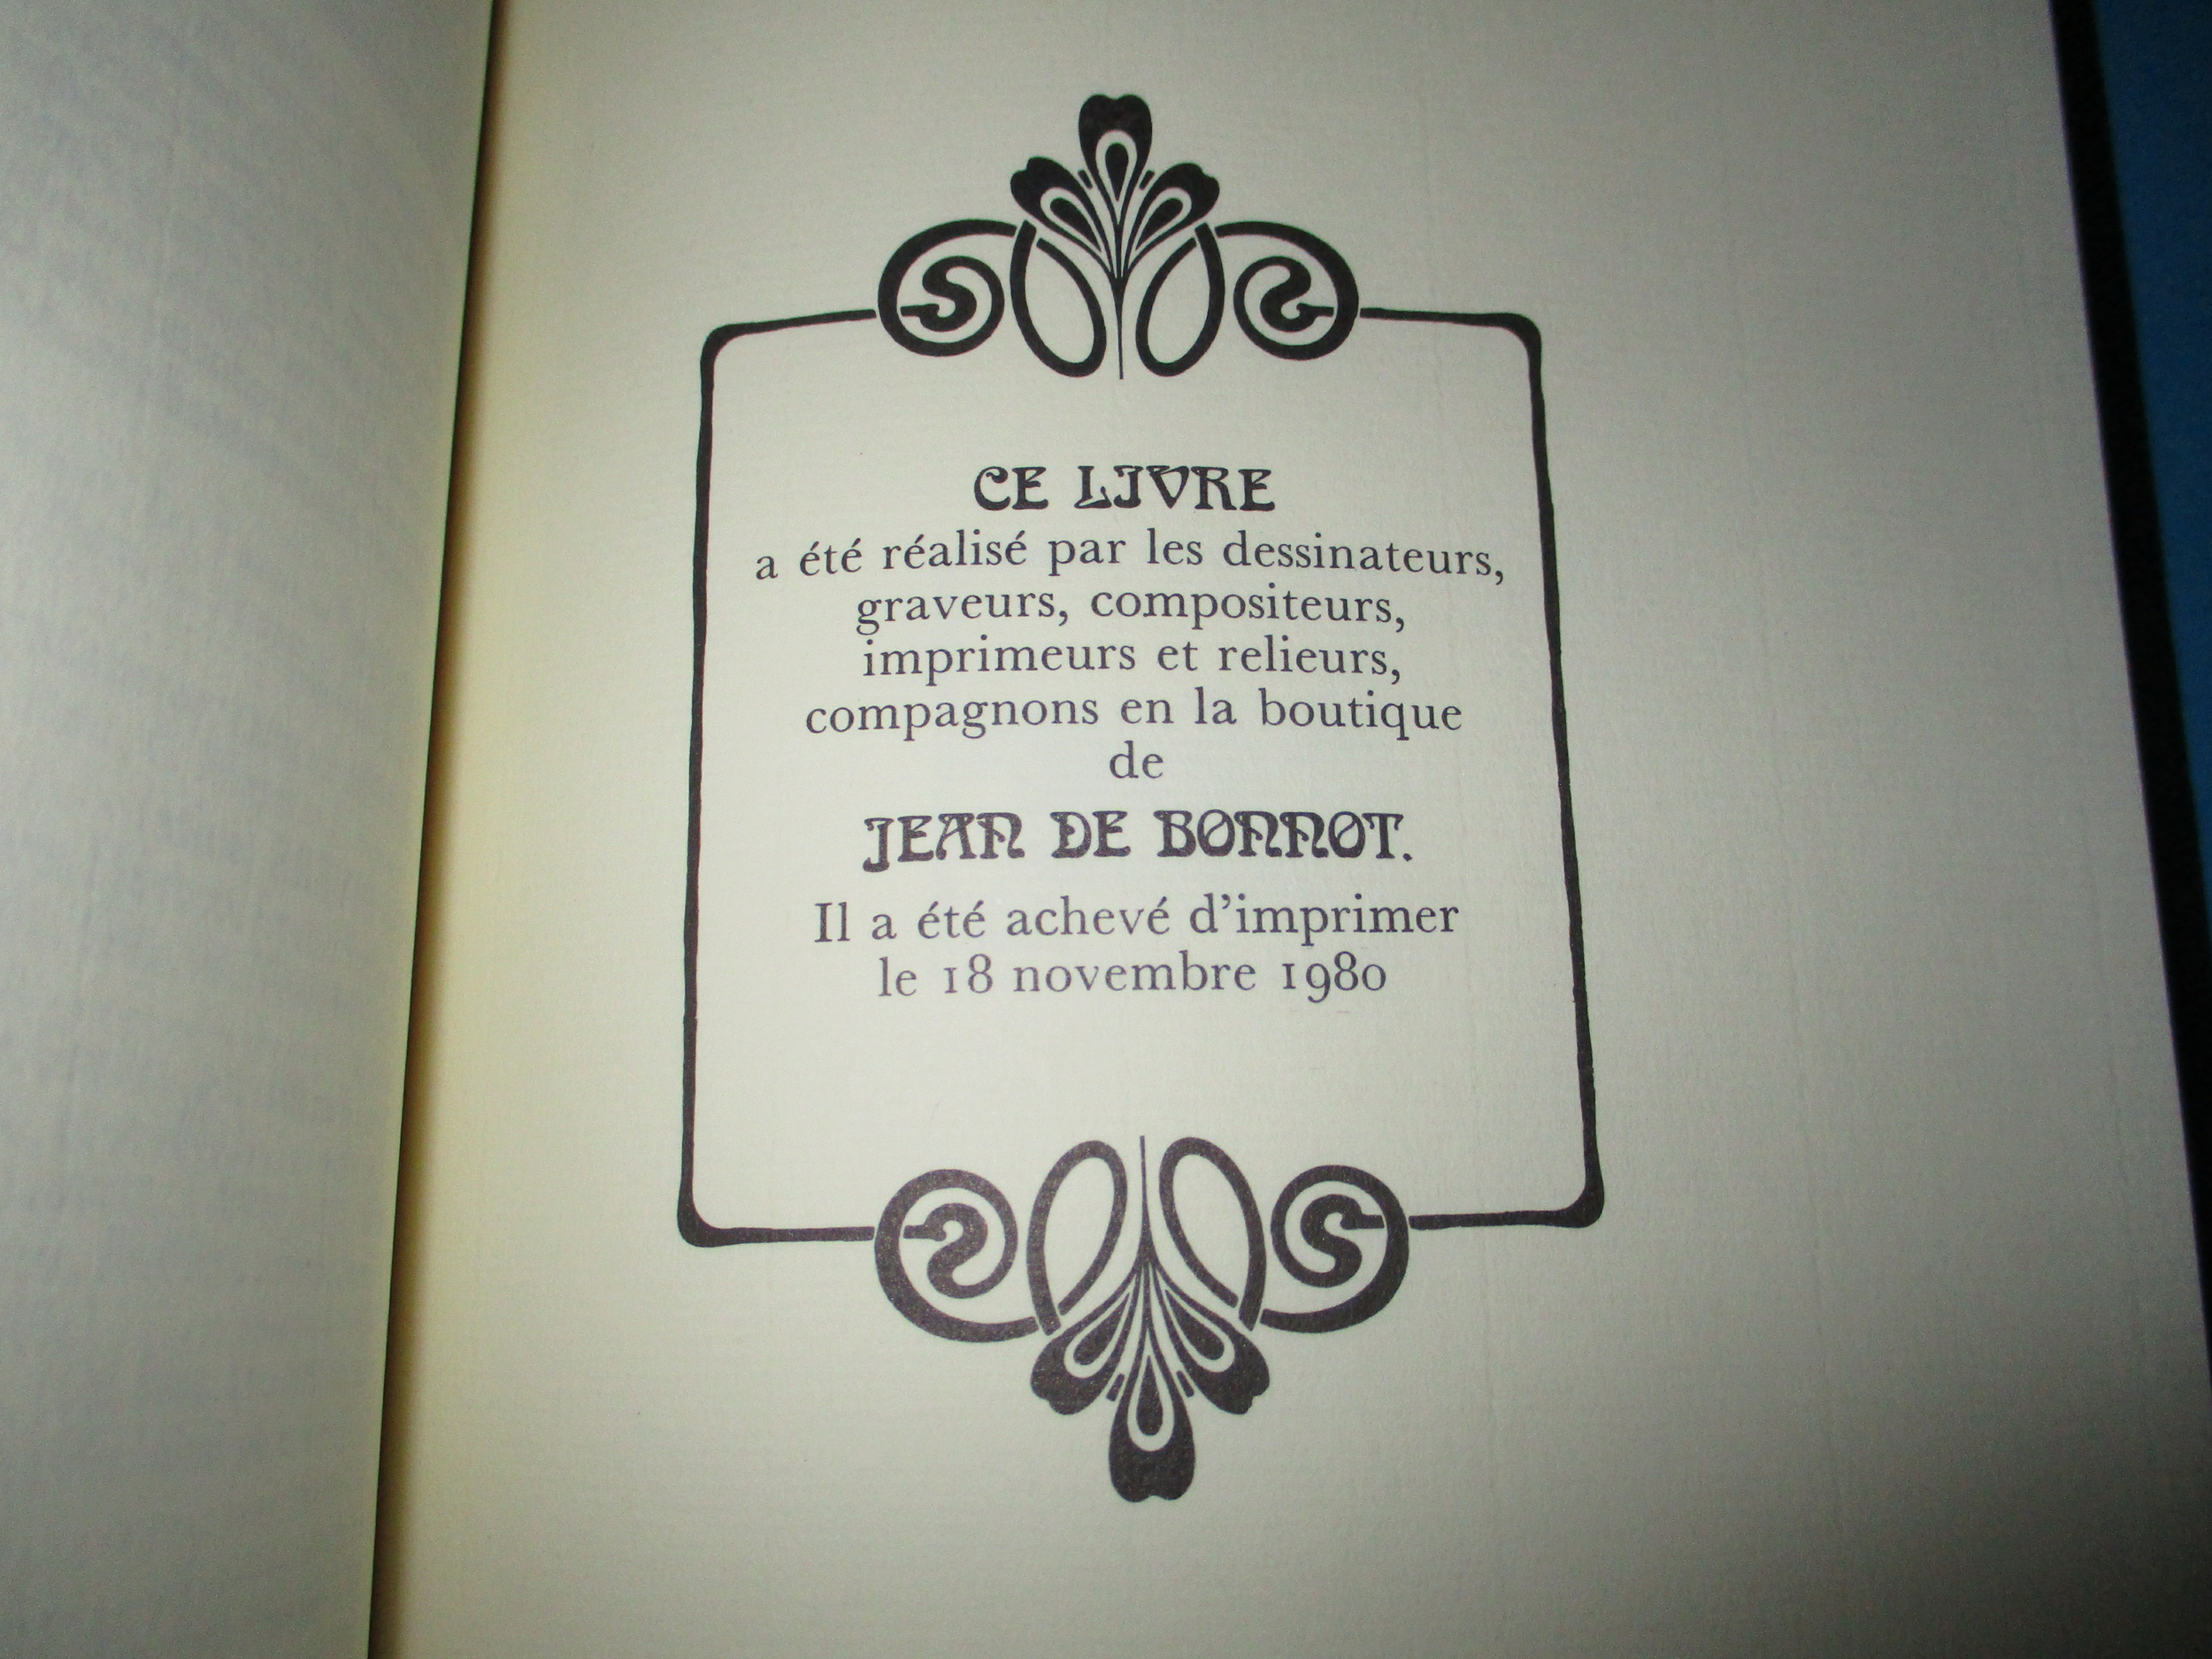 CE LIVRE
a été réalisé par les dessinateurs,
graveurs, compositeurs,
imprimeurs et relieurs,
compagnons en la boutique
de
JEAN DE BONNOT.
Il a été achevé d'imprimer
le 18 novembre 1980